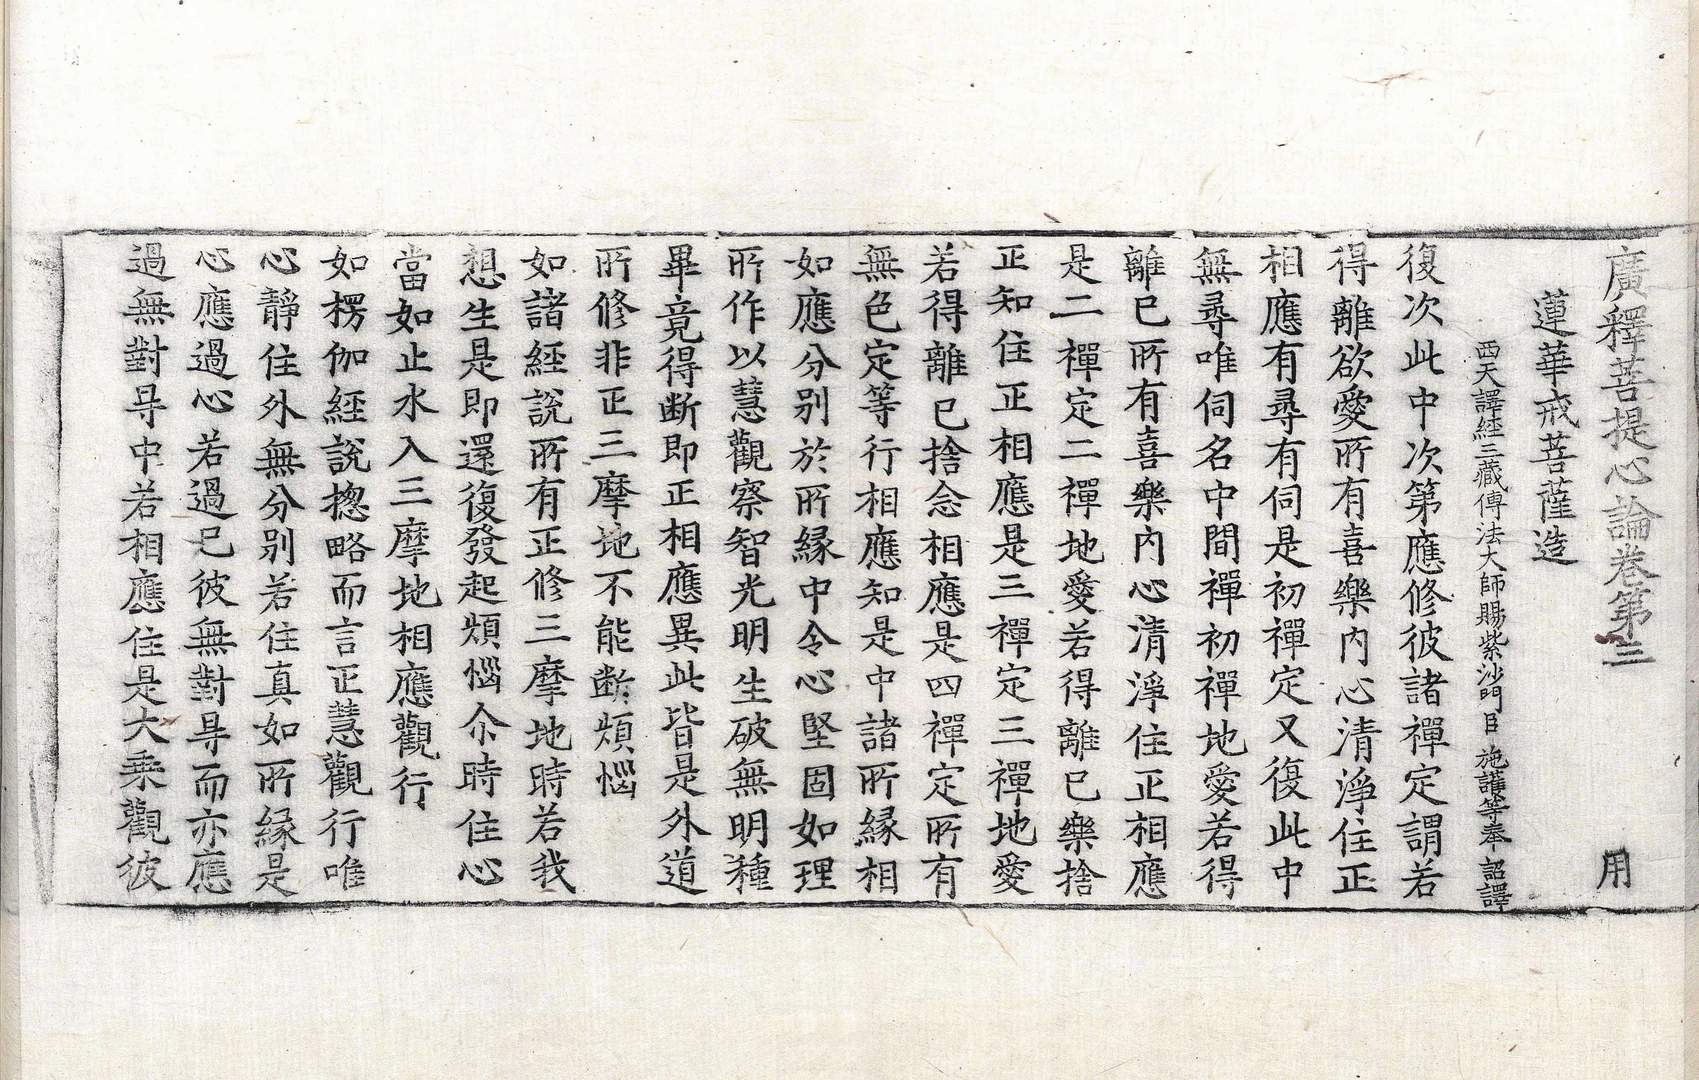 廣釋菩提心論卷第三 用
蓮華戒菩薩造
西天譯經三藏傳法大師賜紫沙門臣 施護等奉 詔譯
復次此中次第應修彼諸禪定謂若
得離欲愛所有喜樂內心清淨住正
相應有尋有伺是初禪定又復此中
無尋唯伺名中間禪初禪地愛若得
離已所有喜樂內心清淨住正相應
是二禪定二禪地愛若得離已樂捨
正知住正相應是三禪定三禪地愛
若得離已捨念相應是四禪定所有
無色定等行相應知是中諸所緣相
如應分別於所緣中令心堅固如理
所作以慧觀察智光明生破無明種
畢竟得断即正相應異此皆是外道
所修非正三摩地不能断煩惱
如諸經說所有正修三摩地時若我
想生是即還復發起煩惱尒時住心
當如止水入三摩地相應觀行
如楞伽經說揔略而言正慧觀行唯
心靜住外無分別若住真如所緣是
心應過心若過已彼無對㝵而亦應
過無對㝵中若相應住是大乘觀彼